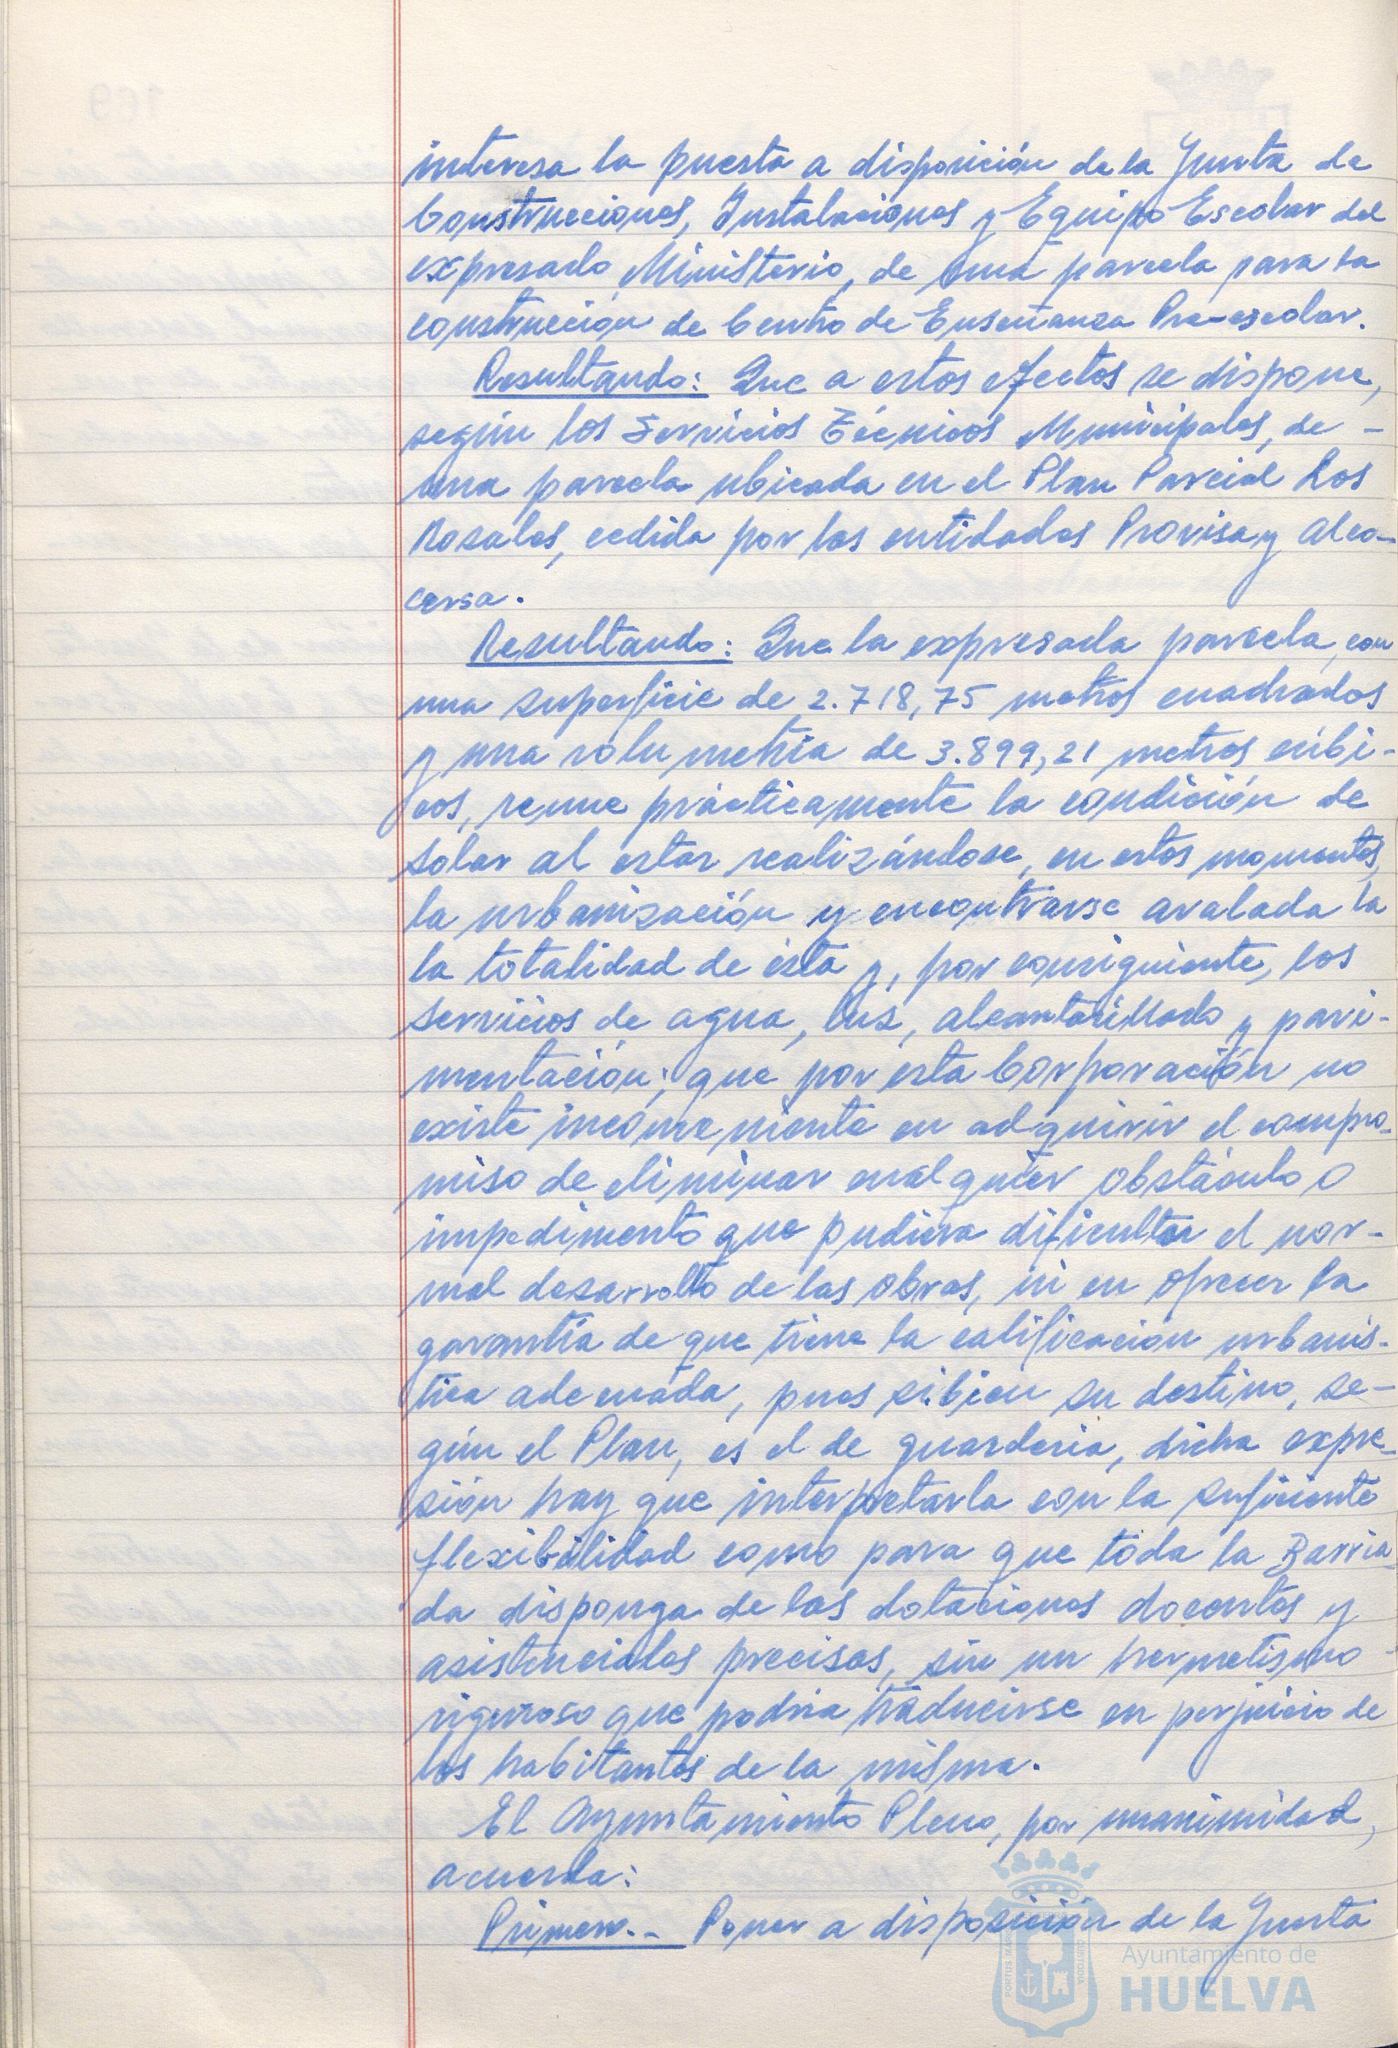 interesa la puesta a disposición de la Junta de
Construcciones, Instalaciones y Equipo Escolar del
expresado Ministerio, de una parcela para la
construcción de Centro de Enseñanza Pre-escolar.
Resultando: Que a estos efectos se dispone,
según los Servicios Técnicos Municipales, de -
una parcela ubicada en el Plan Parcial Los
Rosales, cedida por las entidades Provisa y Alco-
cersa.
Resultando: Que la expresada parcela, con
una superficie de 2.718,75 metros cuadrados
y una volumetría de 3.899,21 metros cúbi-
cos, reune prácticamente la condición de
solar al estar realizándose, en estos momentos,
la urbanización y encontrarse avalada la
la totalidad de ésta y, por consiguiente, los
servicios de agua, luz, alcantarillado y pavi-
mentación; que por esta Corporación no
existe inconveniente en adquirir el compro-
miso de eliminar cualquier obstáculo o
impedimento que pudiera dificultar el nor-
mal desarrollo de las obras, ni en ofrecer la
garantía de que tiene la calificación urbanís-
tica adecuada, pues si bien su destino, se-
gún el Plan, es el de guardería, dicha expre-
sión hay que interpretarla con la suficiente
flexibilidad como para que toda la Barria-
da disponga de las dotaciones docentes y
asistenciales precisas, sin un hermetismo -
riguroso que podría traducirse en perjuicio de
los habitantes de la misma.
El Ayuntamiento Pleno, por unanimidad,
acuerda:
Primero.- Poner a disposición de la Junta
PORTUS MARIS
CUSTODIA
Ayuntamiento de
HUELVA